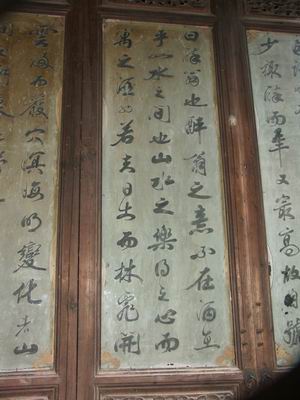 少輒醉而年又最高故自號
曰醉翁也醉翁之意不在酒在
乎山水之間也山水之樂得之心而
寓之酒也若夫日出而林霏開
雲歸而巖穴暝晦明變化者山